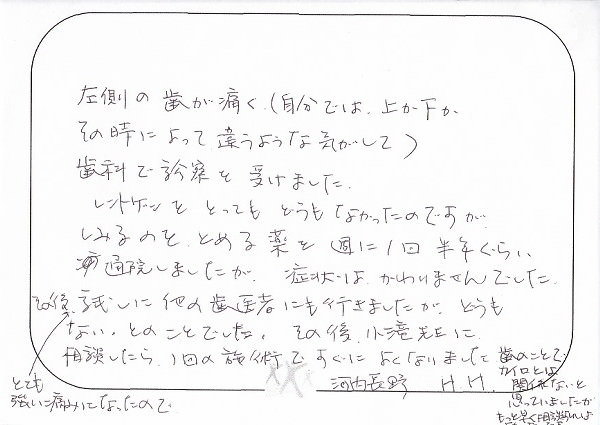 左側の歯が痛く、(自分では、上か下か、
その時によって違うような気がして)
歯科で診察を受けました。
レントゲンをとってもどうもなかったのですが、
しみるのをとめる薬を週に1回半年ぐらい
通院しましたが、症状はかわりませんでした。
その後、試しに他の歯医者にも行きましたが、どうも
ない、とのことでした。その後、小滝先生に
相談したら、1回の施術ですぐによくなりました
河内長野 H.M.
とても
強い痛みになったので
歯のことで
カイロとは
関係ないと
思っていましたが
もっと早く相談すれば